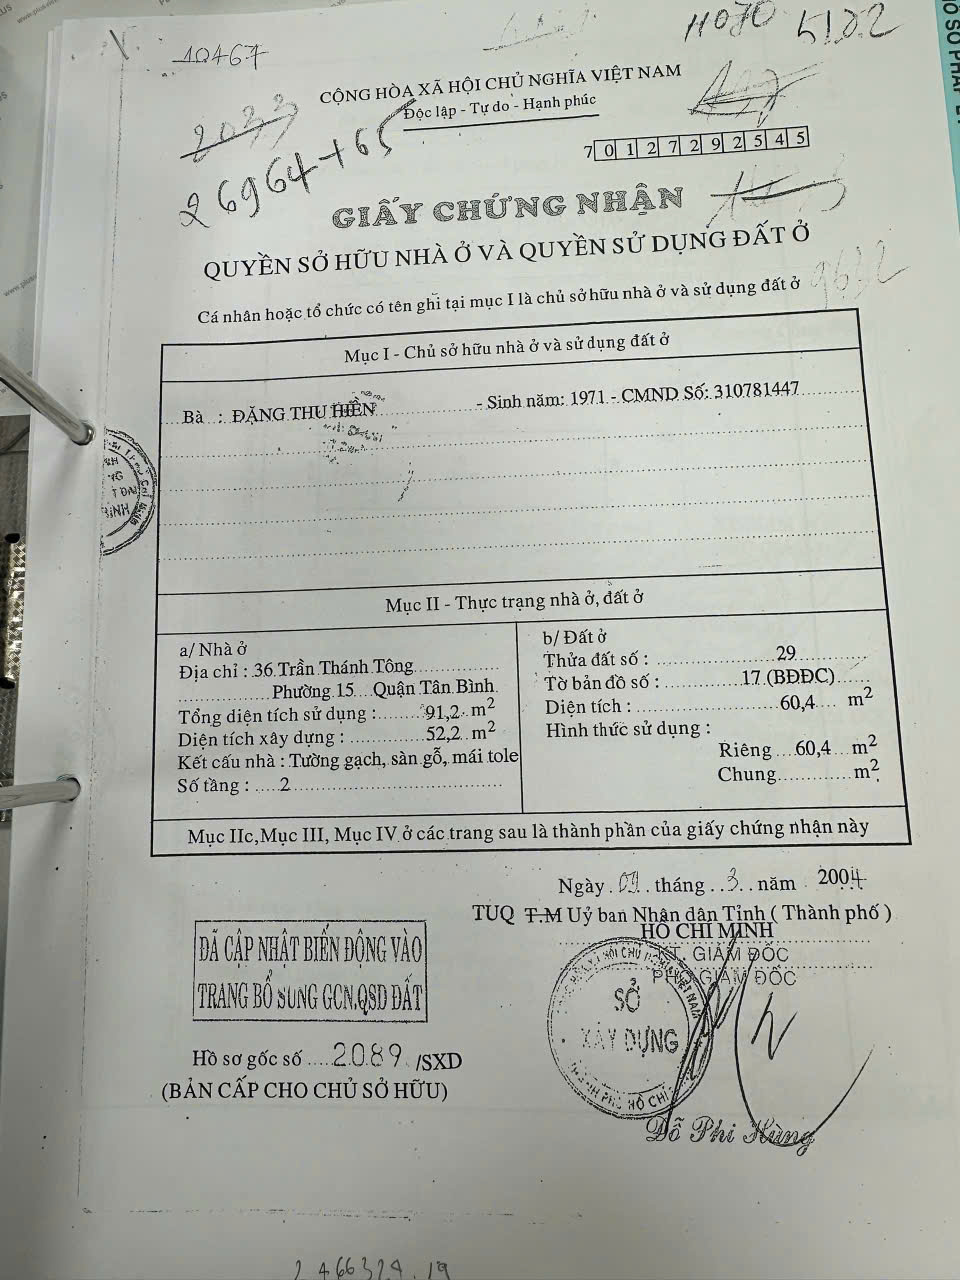 10467
11070
5122
CỘNG HÒA XÃ HỘI CHỦ NGHĨA VIỆT NAM
Độc lập - Tự do - Hạnh phúc
2033
26964+65
7 0 1 2 7 2 9 2 5 4 5
GIẤY CHỨNG NHẬN
QUYỀN SỞ HỮU NHÀ Ở VÀ QUYỀN SỬ DỤNG ĐẤT Ở
Cá nhân hoặc tổ chức có tên ghi tại mục I là chủ sở hữu nhà ở và sử dụng đất ở
9632
Mục I - Chủ sở hữu nhà ở và sử dụng đất ở
Bà : ĐẶNG THU HIỀN - Sinh năm: 1971 - CMND Số: 310781447
Mục II - Thực trạng nhà ở, đất ở
a/ Nhà ở
Địa chỉ : 36 Trần Thánh Tông
Phường 15 Quận Tân Bình
Tổng diện tích sử dụng : 91,2 m2
Diện tích xây dựng : 52,2 m2
Kết cấu nhà : Tường gạch, sàn gỗ, mái tole
Số tầng : 2
b/ Đất ở
Thửa đất số : 29
Tờ bản đồ số : 17 (BĐĐC)
Diện tích : 60,4 m2
Hình thức sử dụng :
Riêng 60,4 m2
Chung m2
Mục IIc, Mục III, Mục IV ở các trang sau là thành phần của giấy chứng nhận này
Ngày tháng 3 năm 2004
TUQ T.M Uỷ ban Nhân dân Tỉnh ( Thành phố )
HỒ CHÍ MINH
KT. GIÁM ĐỐC
PHÓ GIÁM ĐỐC
SỞ
XÂY DỰNG
Đỗ Phi Hùng
ĐÃ CẬP NHẬT BIẾN ĐỘNG VÀO
TRANG BỔ SUNG GCN.QSD ĐẤT
Hồ sơ gốc số 2089 /SXD
(BẢN CẤP CHO CHỦ SỞ HỮU)
2466324.19